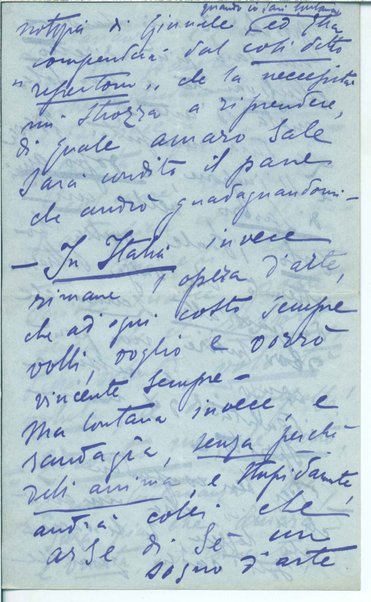 quando io sarò lontana
notizia di Giornale (ed Ella
comprenderà dal così detto
"repertorio" che la necessità
mi strozza a riprendere,
di quale amaro sale
sarà condito il pane
che andrò guadagnandomi –
– In Italia invece
rimane l'opera d'arte,
che ad ogni costo sempre
volli, voglio e vorrò
vincente sempre –
Ma lontana invece, e
randagia, senza perchè
dell'anima, e stupidamente,
andrà colei che
arse di Sè un
sogno d'arte